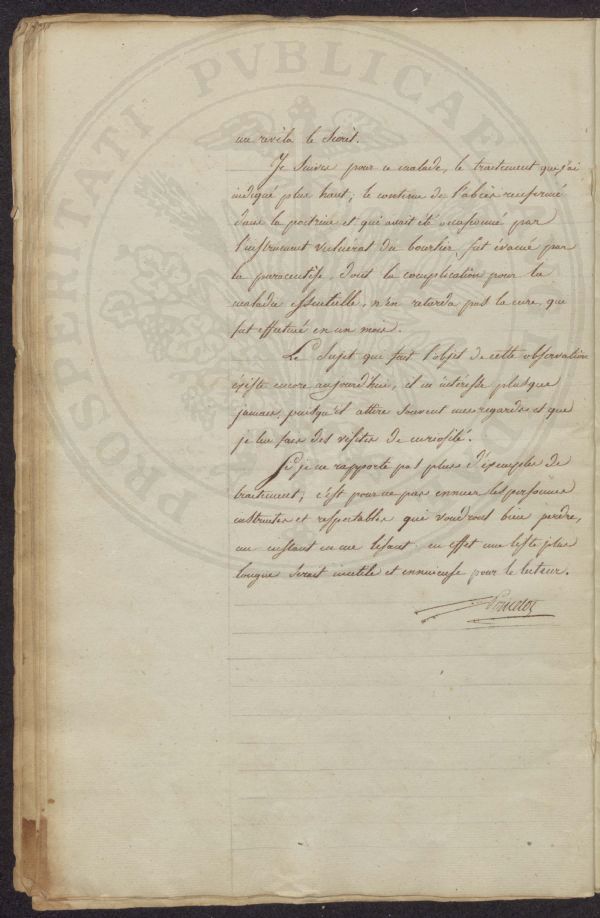 PROSPERITATI PVBLICAE
me révéla le secret.
Je suives pour ce malade, le traitement que j'ai
indiqué plus haut; le contenu de l'abcès renfermé
dans la poctrine et qui avait été occasionné par
l'instrument vulnerat du bourlier, fut évacué par
la paracentèse, dont la complication pour la
maladie essentielle, n'en retarda pas la cure, qui
fut effectuée en un mois.
Le Sujet qui fait l'objet de cette observation
existe encore aujourd'hui, il m'intéresse plus que
jamais, puisqu'il attire souvent mes regards et que
je lui fais des visites de curiosité.
Si je ne rapporte pas plus d'éxemples de
traitement; c'est pour ne pas ennuier les personnes
instruites et respectables qui voudront bien perdre,
un instant en me lisant. en effet une liste plus
longue serait inutile et ennuieuse pour le lecteur.